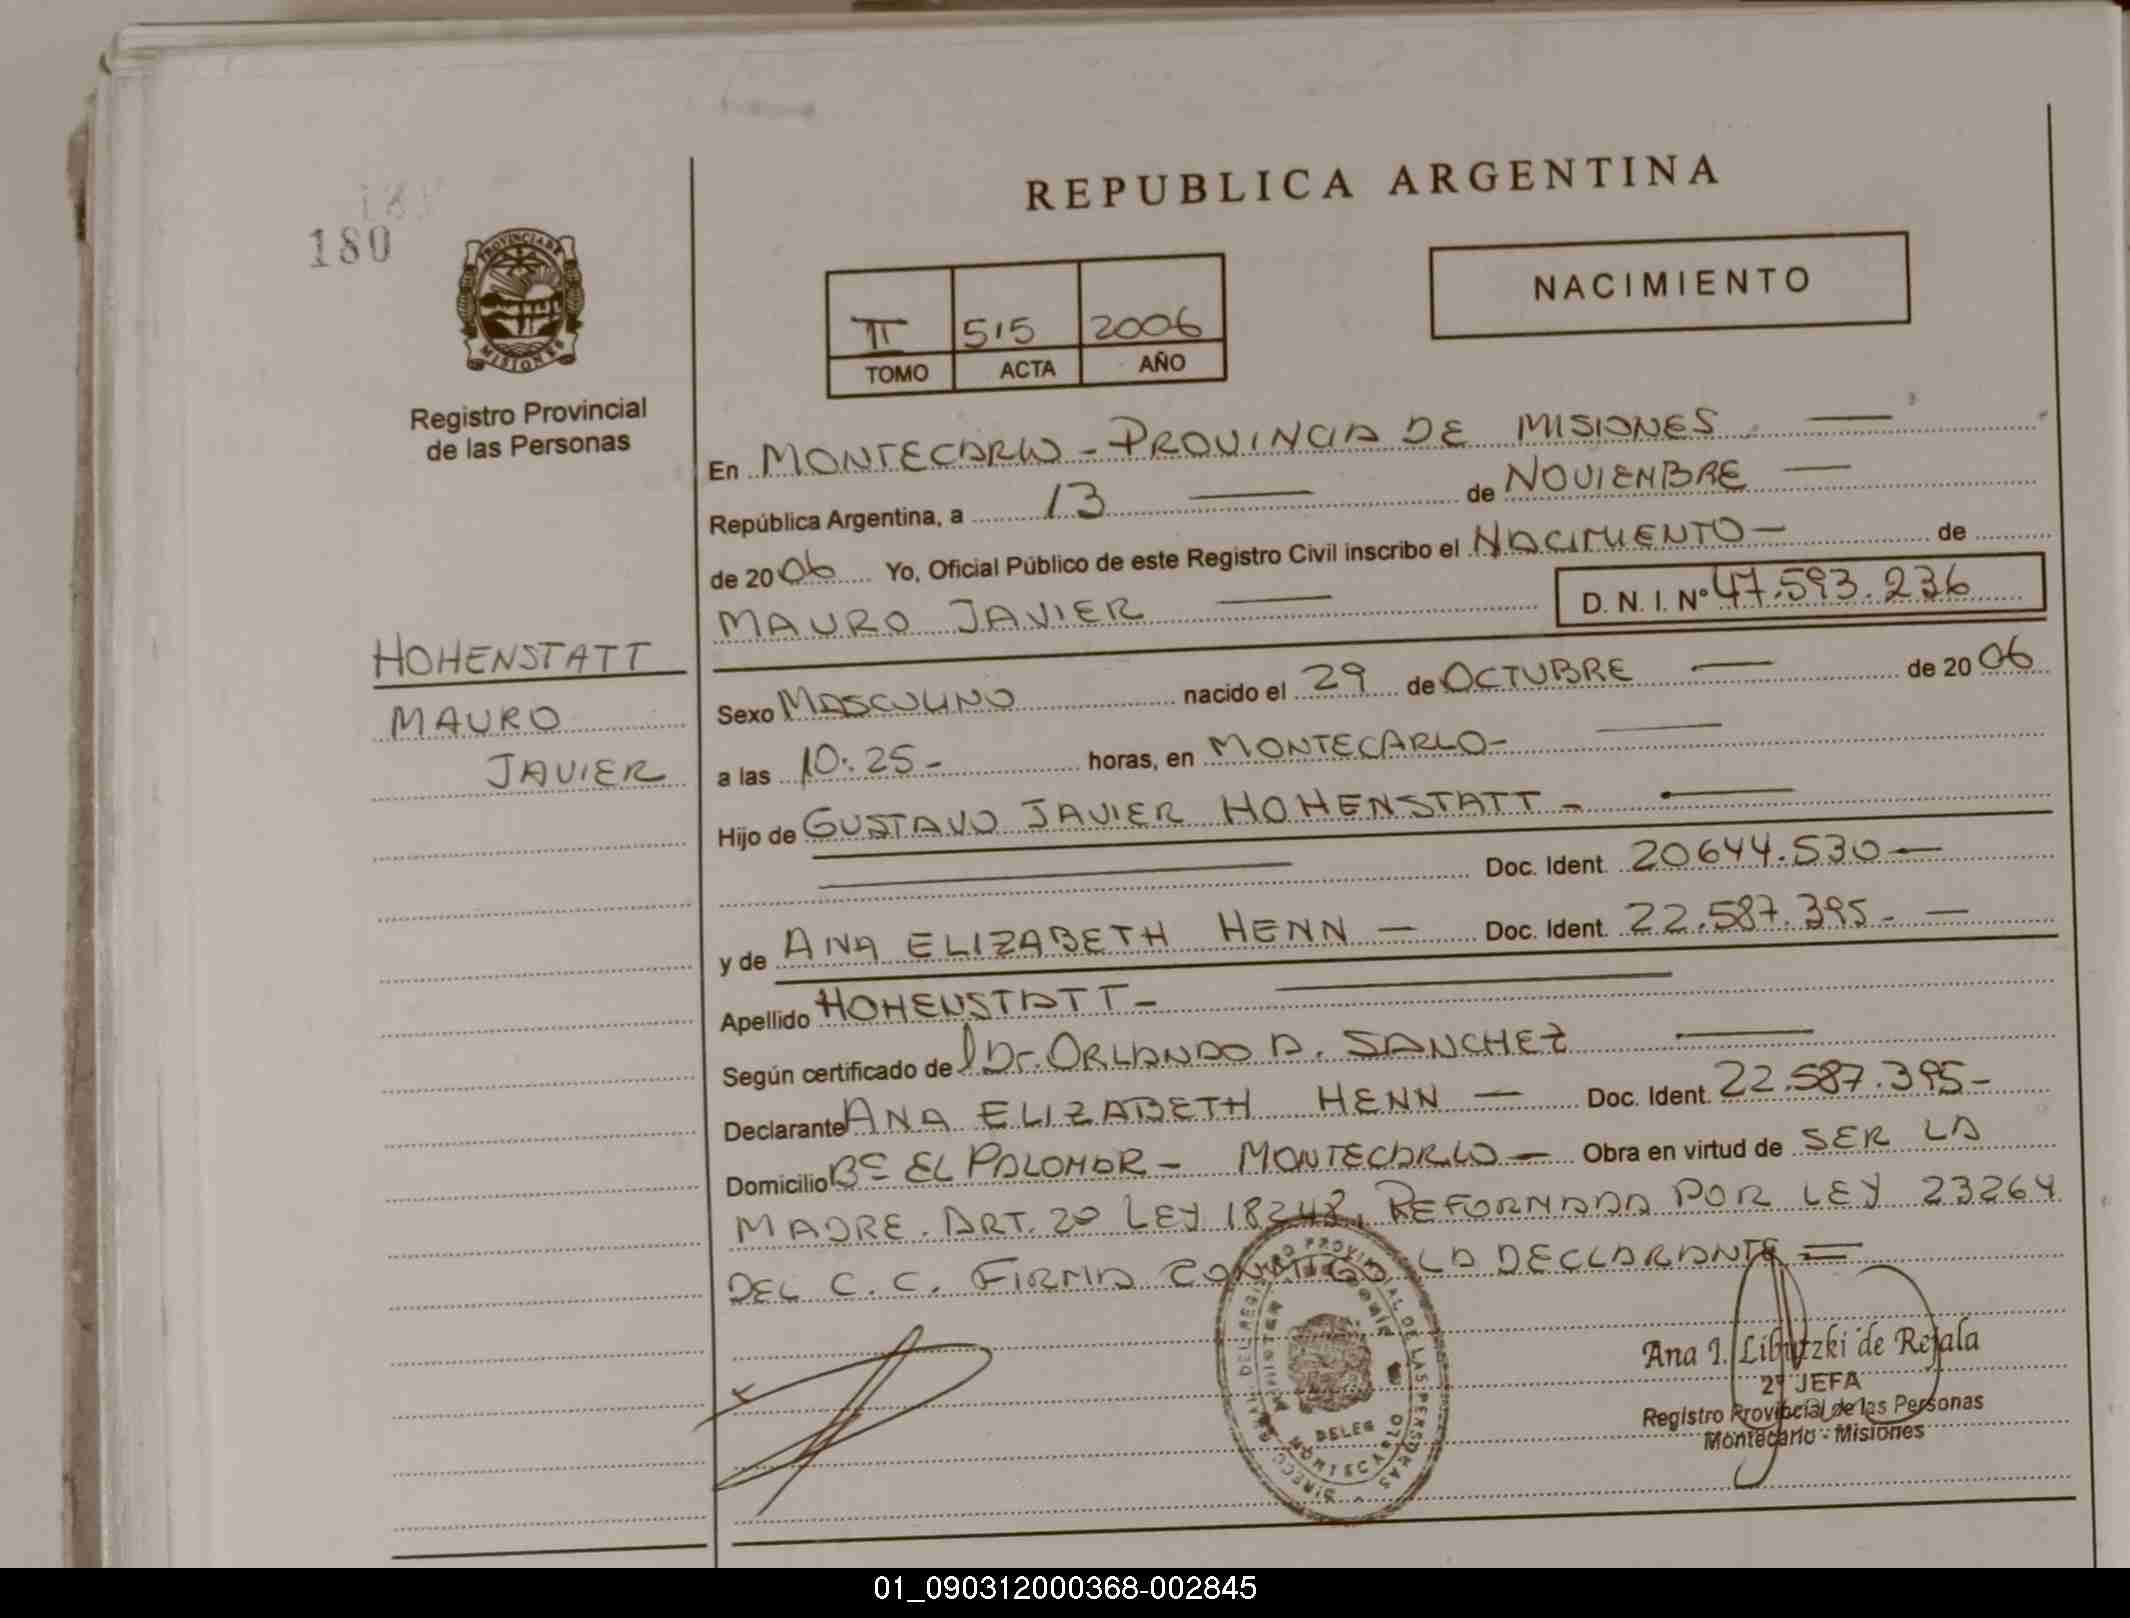 180
PROVINCIA DE
MISIONES
Registro Provincial
de las Personas
HOHENSTATT
MAURO
JAVIER
REPUBLICA ARGENTINA
II 515 2006
TOMO ACTA AÑO
NACIMIENTO
En MONTECARLO - PROVINCIA DE MISIONES
República Argentina, a 13 de NOVIEMBRE
de 2006 Yo, Oficial Público de este Registro Civil inscribo el NACIMIENTO - de
MAURO JAVIER D. N. I. N° 47.593.236
Sexo MASCULINO nacido el 29 de OCTUBRE de 2006
a las 10:25 - horas, en MONTECARLO-
Hijo de GUSTAVO JAVIER HOHENSTATT -
Doc. Ident. 20644.530 -
y de ANA ELIZABETH HENN - Doc. Ident. 22.587.395. -
Apellido HOHENSTATT -
Según certificado de Dr. ORLANDO A. SANCHEZ
Declarante ANA ELIZABETH HENN - Doc. Ident. 22.587.395-
Domicilio B° EL PALOMAR - MONTECARLO - Obra en virtud de SER LA
MADRE. ART. 20 LEY 18248, REFORMADA POR LEY 23264
DEL C. C. FIRMA CONMIGO LA DECLARANTE =
Ana I. Libutzki de Rejala
2° JEFA
Registro Provincial de las Personas
Montecarlo - Misiones
01_090312000368-002845